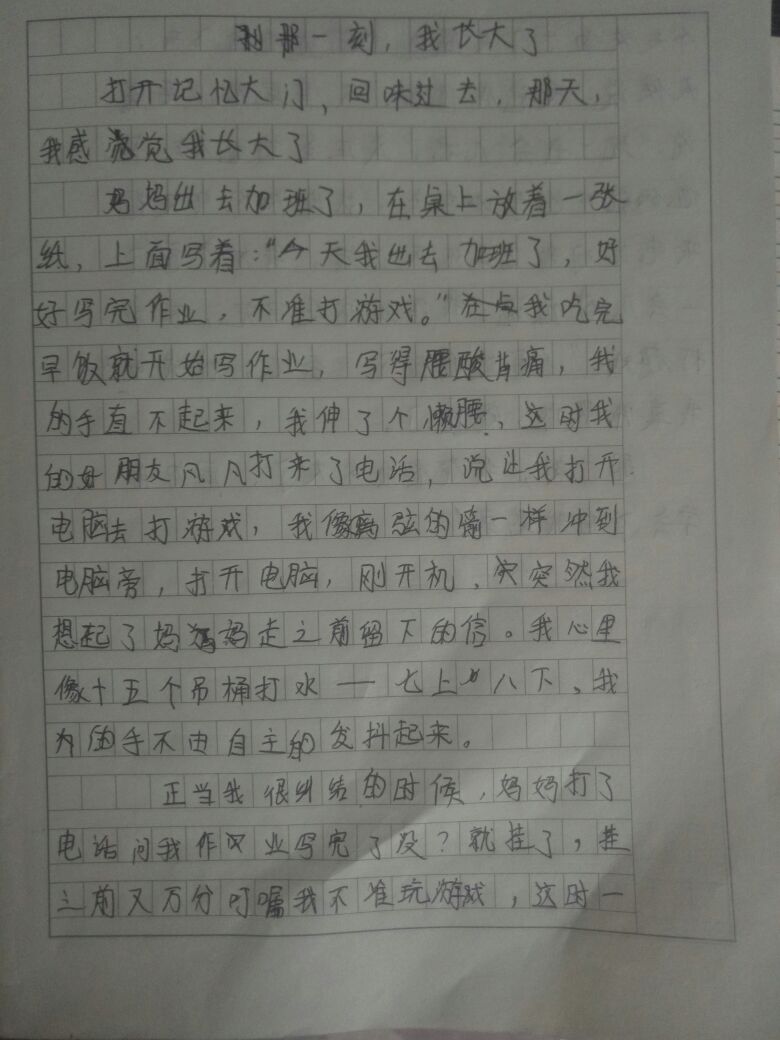 那一刻，我长大了
打开记忆大门，回味过去，那天，
我感觉我长大了
妈妈出去加班了，在桌上放着一张
纸，上面写着：“今天我出去加班了，好
好写完作业，不准打游戏。”我吃完
早饭就开始写作业，写得腰酸背痛，我
的手直不起来，我伸了个懒腰，这时我
的好朋友凡凡打来了电话，说让我打开
电脑去打游戏，我像离弦的箭一样冲到
电脑旁，打开电脑，刚开机，突然我
想起了妈妈走之前留下的信。我心里
像十五个吊桶打水——七上八下，我
的手不由自主的发抖起来。
正当我很纠结的时候，妈妈打了
电话问我作业写完了没？就挂了，挂
之前又万分叮嘱我不准玩游戏，这时一